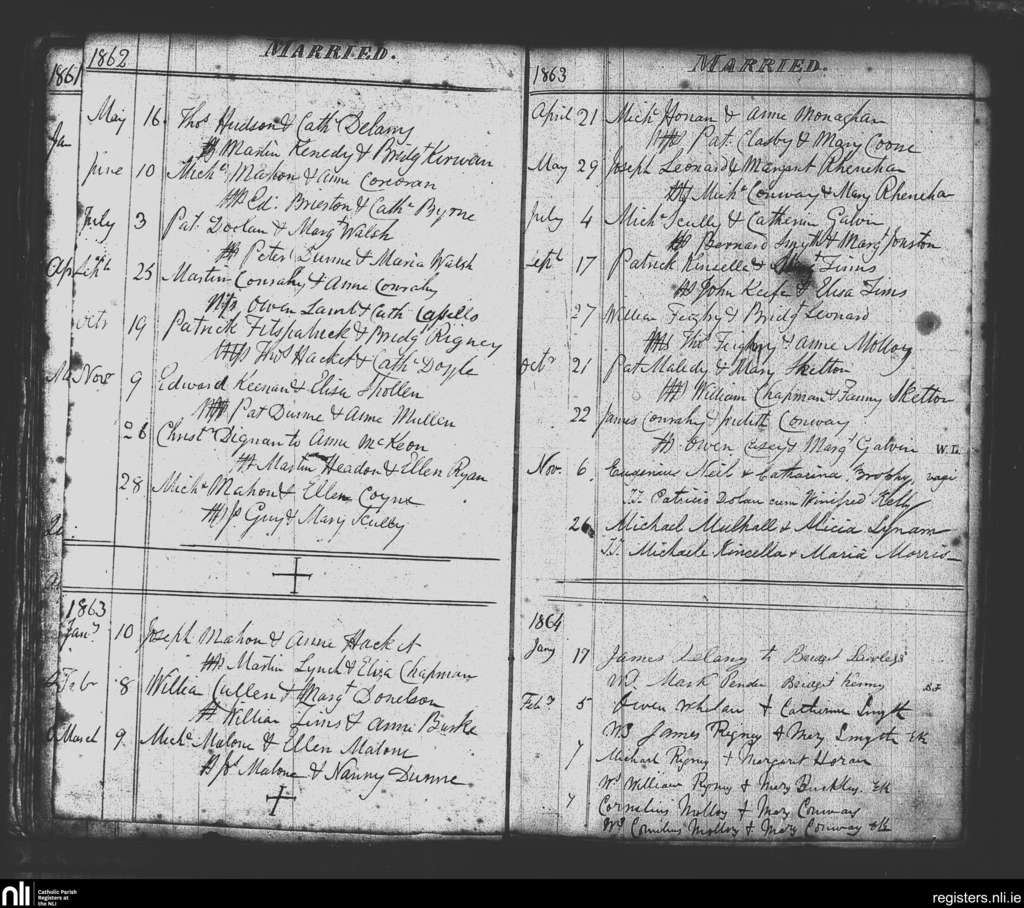 1861
1862
MARRIED.
Ja
May 16. Thos Hudson & Cath Delany
Martin Kenedy & Bridgt Kirwan
June 10 Michl Mahon & Anne Corcoran
Ed: Brieston & Cathe Byrne
July 3 Pat. Doolan & Margt Walsh
Peter Dunne & Maria Walsh
Septb 25 Martin Conrahy & Anne Conrahy
Owen Lamb & Cath
Octr 19 Patrick Fitspatrick & Bridg Rigney
Thos Hacket & Cathe Doyle
Novr 9 Edward Keenan & Elisa Spollen
Pat Dunne & Anne Mullen
26 Christr Dignan to Anne McKeon
Martin Headon & Ellen Ryan
28 Michl Mahon & Ellen Coyne
Js Guy & Mary Scully
1863
Jany 10 Joseph Mahon & Anne Hacket
Martin Lynch & Eliza Chapman
Feb 8 Willia Cullen & Margt Donelson
William Tims & Anne Burke
March 9. Michl Malone & Ellen Malone
Malone & Nanny Dunne
1863
MARRIED.
April 21 Michl Honan & Anne Monaghan
Pat. Clasby & Mary Coone
May 29 Joseph Leonard & Margaret Rhenehan
Michl Conway & Mary Rhenehan
July 4 Michl Scully & Catherin Galvin
Bernard Smyth & Margt Jonston
Septb 17 Patrick Kinsella & Tims
John Keife & Elisa Tims
27 William Feighy & Bridgt Leonard
Thos Feighry & Anne Molloy
Octr 21 Pat Maledy & Mary Skelton
William Chapman & Fanny Skelton
22 James Conrahy & Judith Conway
Owen Casey & Margt Galvin W.L.
Nov. 6. Eugenius Neils & Catharina Brophy, vagi
TT. Patricio Dolan cum Winifred Kelly
26 Michael Mulhall & Alicia Lynam
TT. Michaele Kincella & Maria Morris
1864
Jany 17 James Delany to Bridget Lawless
Mark Pender Bridget Kenny
Feby 5 Owen Whelan & Catherine Smyth
Ws James Rigney & Mary Smyth
7 Michael Rigny & Margaret Horan
Ws William Rigny & Mary Buckley.
7 Cornelius Molloy & Mary Conway
Ws Cornelius Molloy & Mary Conway
nli
Catholic Parish
Registers at
the NLI
registers.nli.ie